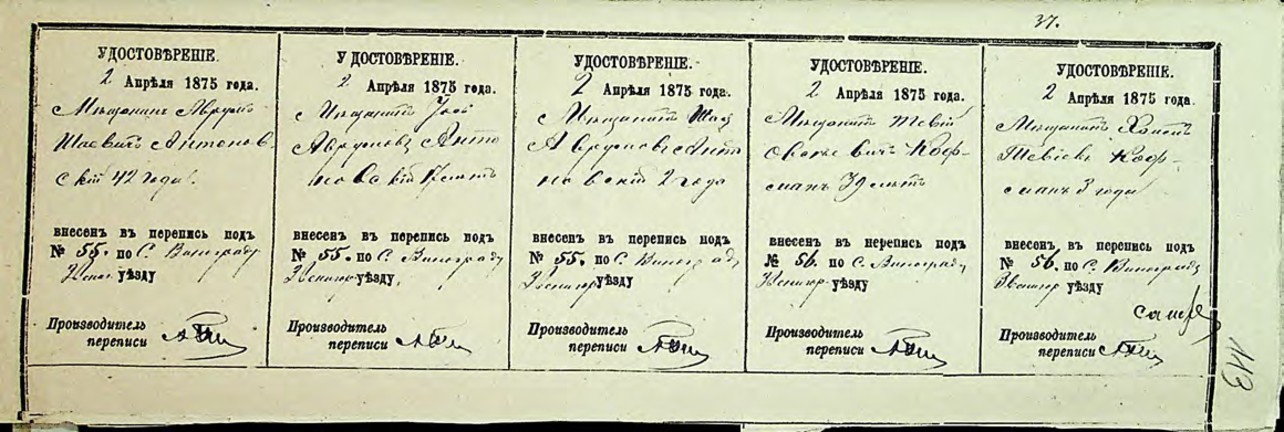 37.
УДОСТОВѢРЕНІЕ.
2 Апрѣля 1875 года.
Мѣщанинъ Аврумъ
Шаевичъ Антонов-
скій 42 года.
внесенъ въ перепись подъ
№ 55. по С. Винограду
Звениг. уѣзду
Производитель
переписи
УДОСТОВѢРЕНІЕ.
2 Апрѣля 1875 года.
Мѣщанинъ
Аврумовъ Анто
новскій лѣтъ
внесенъ въ перепись подъ
№ 55. по С. Винограду
Звенигор. уѣзду
Производитель
переписи
УДОСТОВѢРЕНІЕ.
2 Апрѣля 1875 года.
Мѣщанинъ Шая
Аврумовъ Анто
новскій 2 года
внесенъ въ перепись подъ
№ 55. по С. Винограду
Звенигор уѣзду
Производитель
переписи
УДОСТОВѢРЕНІЕ.
2 Апрѣля 1875 года.
Мѣщанинъ Тевій
вичъ Коф-
манъ 39 лѣтъ
внесенъ въ перепись подъ
№ 56. по С. Винограду
Звенигор уѣзду
Производитель
переписи
УДОСТОВѢРЕНІЕ.
2 Апрѣля 1875 года.
Мѣщанинъ
Тевіевъ Коф-
манъ 3 года
внесенъ въ перепись подъ
№ 56. по С. Винограду
Звенигор уѣзду
Производитель
переписи
113